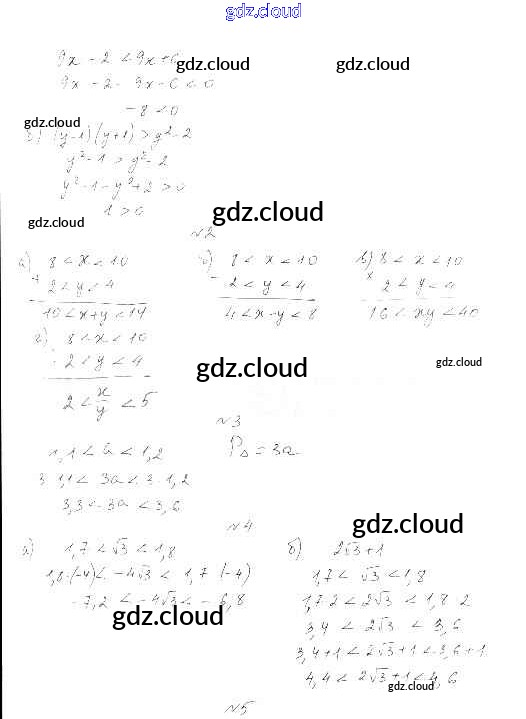 gdz.cloud
9x - 2 < 9x + 6
gdz.cloud gdz.cloud
9x - 2 - 9x - 6 < 0
- 8 < 0
gdz.cloud
(y-1)(y+1) > y² - 2
y² - 1 > y² - 2
y² - 1 - y² + 2 > 0
1 > 0
gdz.cloud
gdz.cloud
№2
а) 8 < x < 10
+ 2 < y < 4
10 < x+y < 14
б) 8 < x < 10
- 2 < y < 4
4 < x-y < 8
в) 8 < x < 10
x 2 < y < 4
16 < xy < 40
г) 8 < x < 10
: 2 < y < 4
2 < x/y < 5
gdz.cloud
gdz.cloud
№3
1,1 < a < 1,2
P△ = 3a
3·1,1 < 3a < 3·1,2
3,3 < 3a < 3,6
№4
gdz.cloud
а) 1,7 < √3 < 1,8
1,8·(-4) < -4√3 < 1,7·(-4)
-7,2 < -4√3 < -6,8
gdz.cloud
б) 2√3+1
1,7 < √3 < 1,8
1,7·2 < 2√3 < 1,8·2
3,4 < 2√3 < 3,6
3,4+1 < 2√3+1 < 3,6+1
4,4 < 2√3+1 < 4,6
gdz.cloud
№5